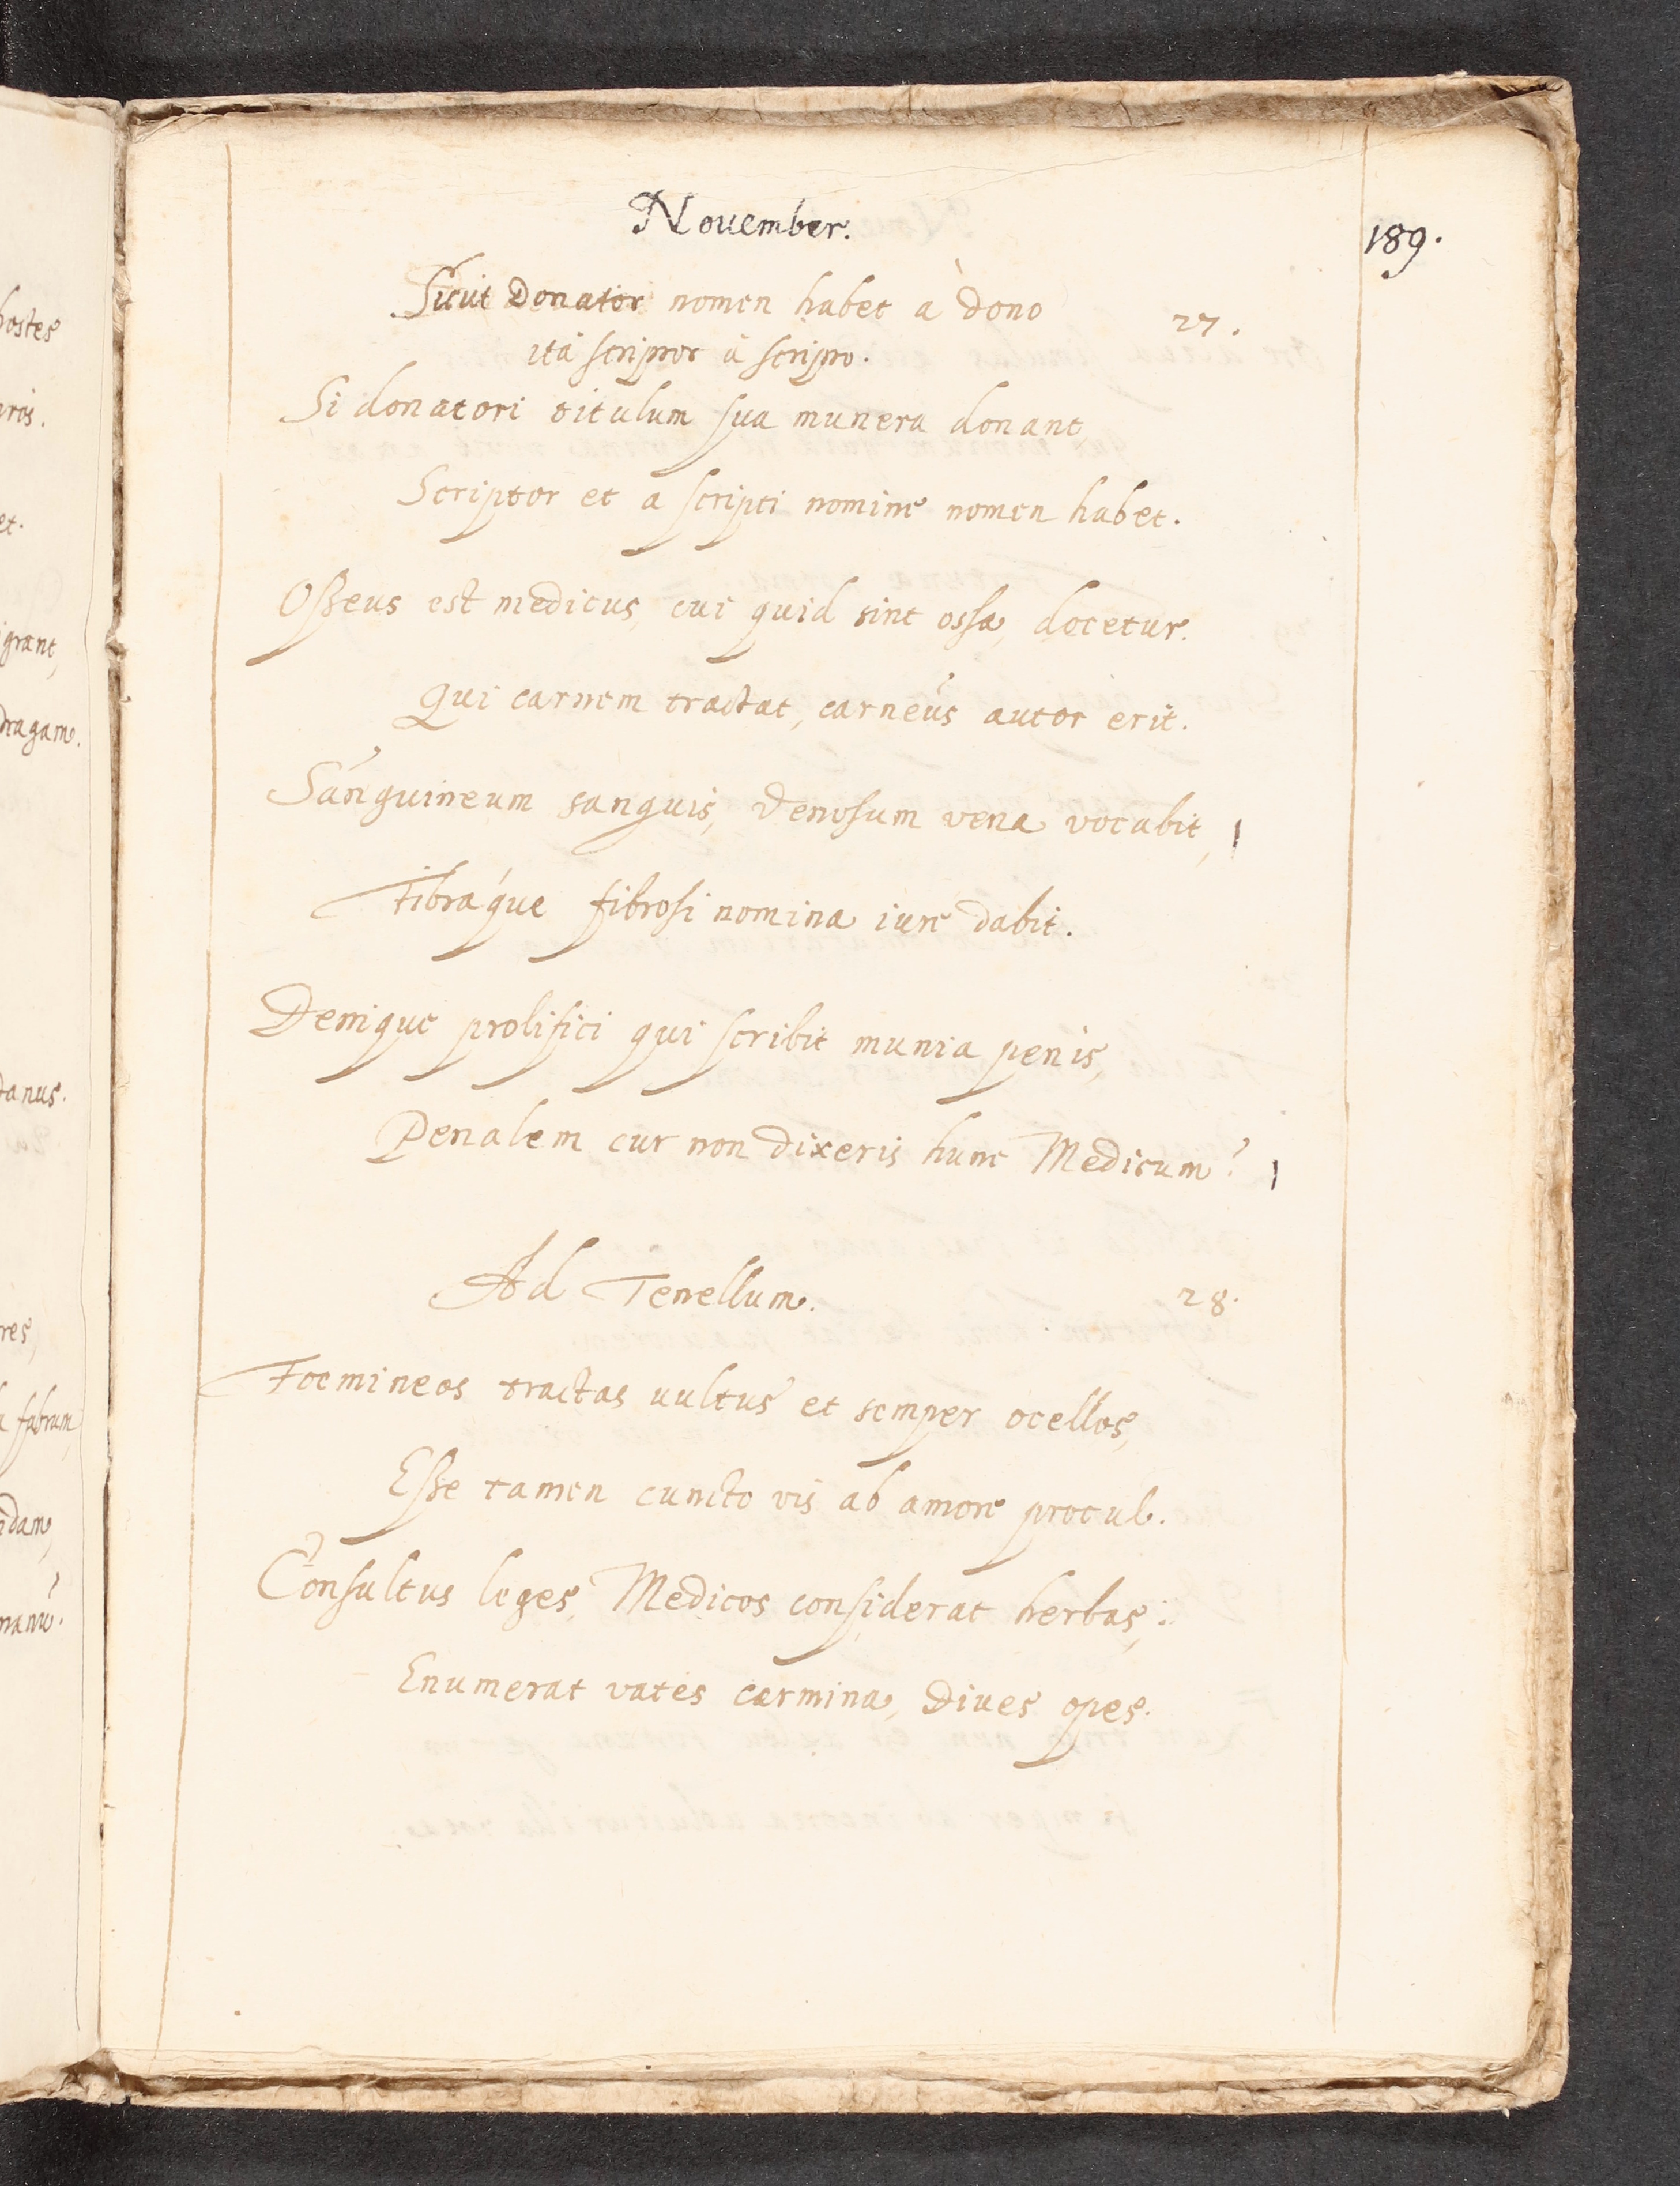 November.
189.
Sicut Donator nomen habet à dono
27.
ità scriptor à scripto.
Si donatori titulum sua munera donant,
Scriptor et a scripti nomine nomen habet.
Osseus est medicus, cui quid sint ossa, docetur.
Qui carnem tractat, carneus autor erit.
Sanguineum sanguis, venosum vena vocabit,
Fibráque fibrosi nomina iure dabit.
Denique prolifici qui scribit munia penis,
Penalem cur non dixeris hunc Medicum?
Ad Tenellum.
28.
Foemineos tractas uultus et semper ocellos,
Esse tamen cuncto vis ab amore procul.
Consultus leges, Medicos considerat herbas;
Enumerat vates carmina, Diues opes.
hostes
et.
igrant,
danus.
res,
a fabrum,